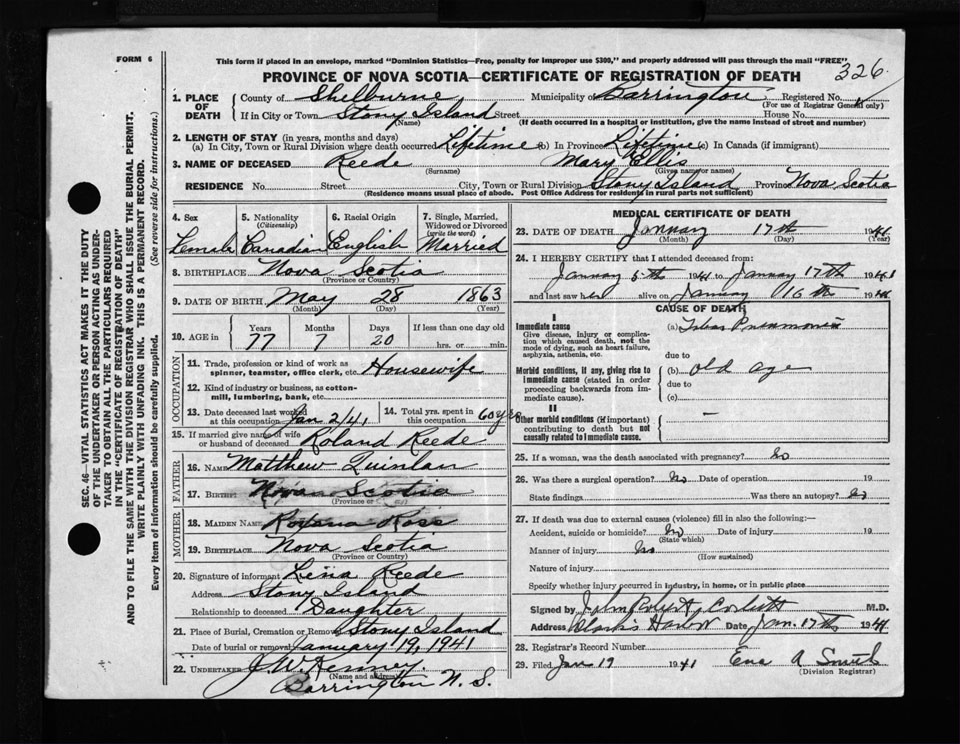 FORM 6
This form if placed in an envelope, marked "Dominion Statistics—Free, penalty for improper use $300," and properly addressed will pass through the mail "FREE".
PROVINCE OF NOVA SCOTIA—CERTIFICATE OF REGISTRATION OF DEATH
326
SEC. 46—VITAL STATISTICS ACT MAKES IT THE DUTY
OF THE UNDERTAKER OR PERSON ACTING AS UNDER-
TAKER TO OBTAIN ALL THE PARTICULARS REQUIRED
IN THE "CERTIFICATE OF REGISTRATION OF DEATH"
AND TO FILE THE SAME WITH THE DIVISION REGISTRAR WHO SHALL ISSUE THE BURIAL PERMIT.
WRITE PLAINLY WITH UNFADING INK. THIS IS A PERMANENT RECORD.
Every item of information should be carefully supplied. (See reverse side for instructions.)
1. PLACE OF DEATH
County of Shelburne Municipality of Barrington Registered No.
(For use of Registrar General only)
If in City or Town Stony Island Street House No.
(Name) (If death occurred in a hospital or institution, give the name instead of street and number)
2. LENGTH OF STAY (in years, months and days)
(a) In City, Town or Rural Division where death occurred Lifetime (b) In Province Lifetime (c) In Canada (if immigrant)
3. NAME OF DECEASED Reede Mary Ellis
(Surname) (Given name or names)
RESIDENCE No. Street City, Town or Rural Division Stony Island Province Nova Scotia
(Residence means usual place of abode. Post Office Address for residents in rural parts not sufficient)
4. Sex
Female
5. Nationality
(Citizenship)
Canadian
6. Racial Origin
English
7. Single, Married, Widowed or Divorced
(write the word)
Married
8. BIRTHPLACE Nova Scotia
(Province or Country)
9. DATE OF BIRTH May 28 1863
(Month) (Day) (Year)
10. AGE in
Years Months Days If less than one day old
77 7 20 hrs. or min.
OCCUPATION
11. Trade, profession or kind of work as
spinner, teamster, office clerk, etc. Housewife
12. Kind of industry or business, as cotton-
mill, lumbering, bank, etc.
13. Date deceased last worked
at this occupation Jan 2/41
14. Total yrs. spent in
this occupation 60 yrs
15. If married give name of wife
or husband of deceased Roland Reede
FATHER
16. NAME Matthew Quinlan
17. Birthplace Nova Scotia
(Province or Country)
MOTHER
18. MAIDEN NAME Roxana Ross
19. BIRTHPLACE Nova Scotia
(Province or Country)
20. Signature of informant Lena Reede
Address Stony Island
Relationship to deceased Daughter
21. Place of Burial, Cremation or Removal Stony Island
Date of burial or removal January 19, 1941
22. UNDERTAKER J. W. Kenney.
(Name and address)
Barrington N. S.
MEDICAL CERTIFICATE OF DEATH
23. DATE OF DEATH January 17th 1941
(Month) (Day) (Year)
24. I HEREBY CERTIFY that I attended deceased from:
January 5th 1941 to January 17th 1941
and last saw her alive on January 16th 1941
CAUSE OF DEATH
I
Immediate cause
Give disease, injury or complica-
tion which caused death, not the
mode of dying, such as heart failure,
asphyxia, asthenia, etc.
(a) Lobar Pneumonia
due to
Morbid conditions, if any, giving rise to
immediate cause (stated in order
proceeding backwards from im-
mediate cause).
(b) old age
due to
(c)
II
Other morbid conditions (if important)
contributing to death but not
causally related to immediate cause.
25. If a woman, was the death associated with pregnancy? no
26. Was there a surgical operation? No Date of operation 19
State findings Was there an autopsy? no
27. If death was due to external causes (violence) fill in also the following:—
Accident, suicide or homicide? no Date of injury 19
(State which)
Manner of injury no
(How sustained)
Nature of injury
Specify whether injury occurred in industry, in home, or in public place
Signed by John Robert Corbett M.D.
Address Clark's Harbor Date Jan. 17th 1941
28. Registrar's Record Number
29. Filed Jan 19 1941 Ena A Smith
(Division Registrar)